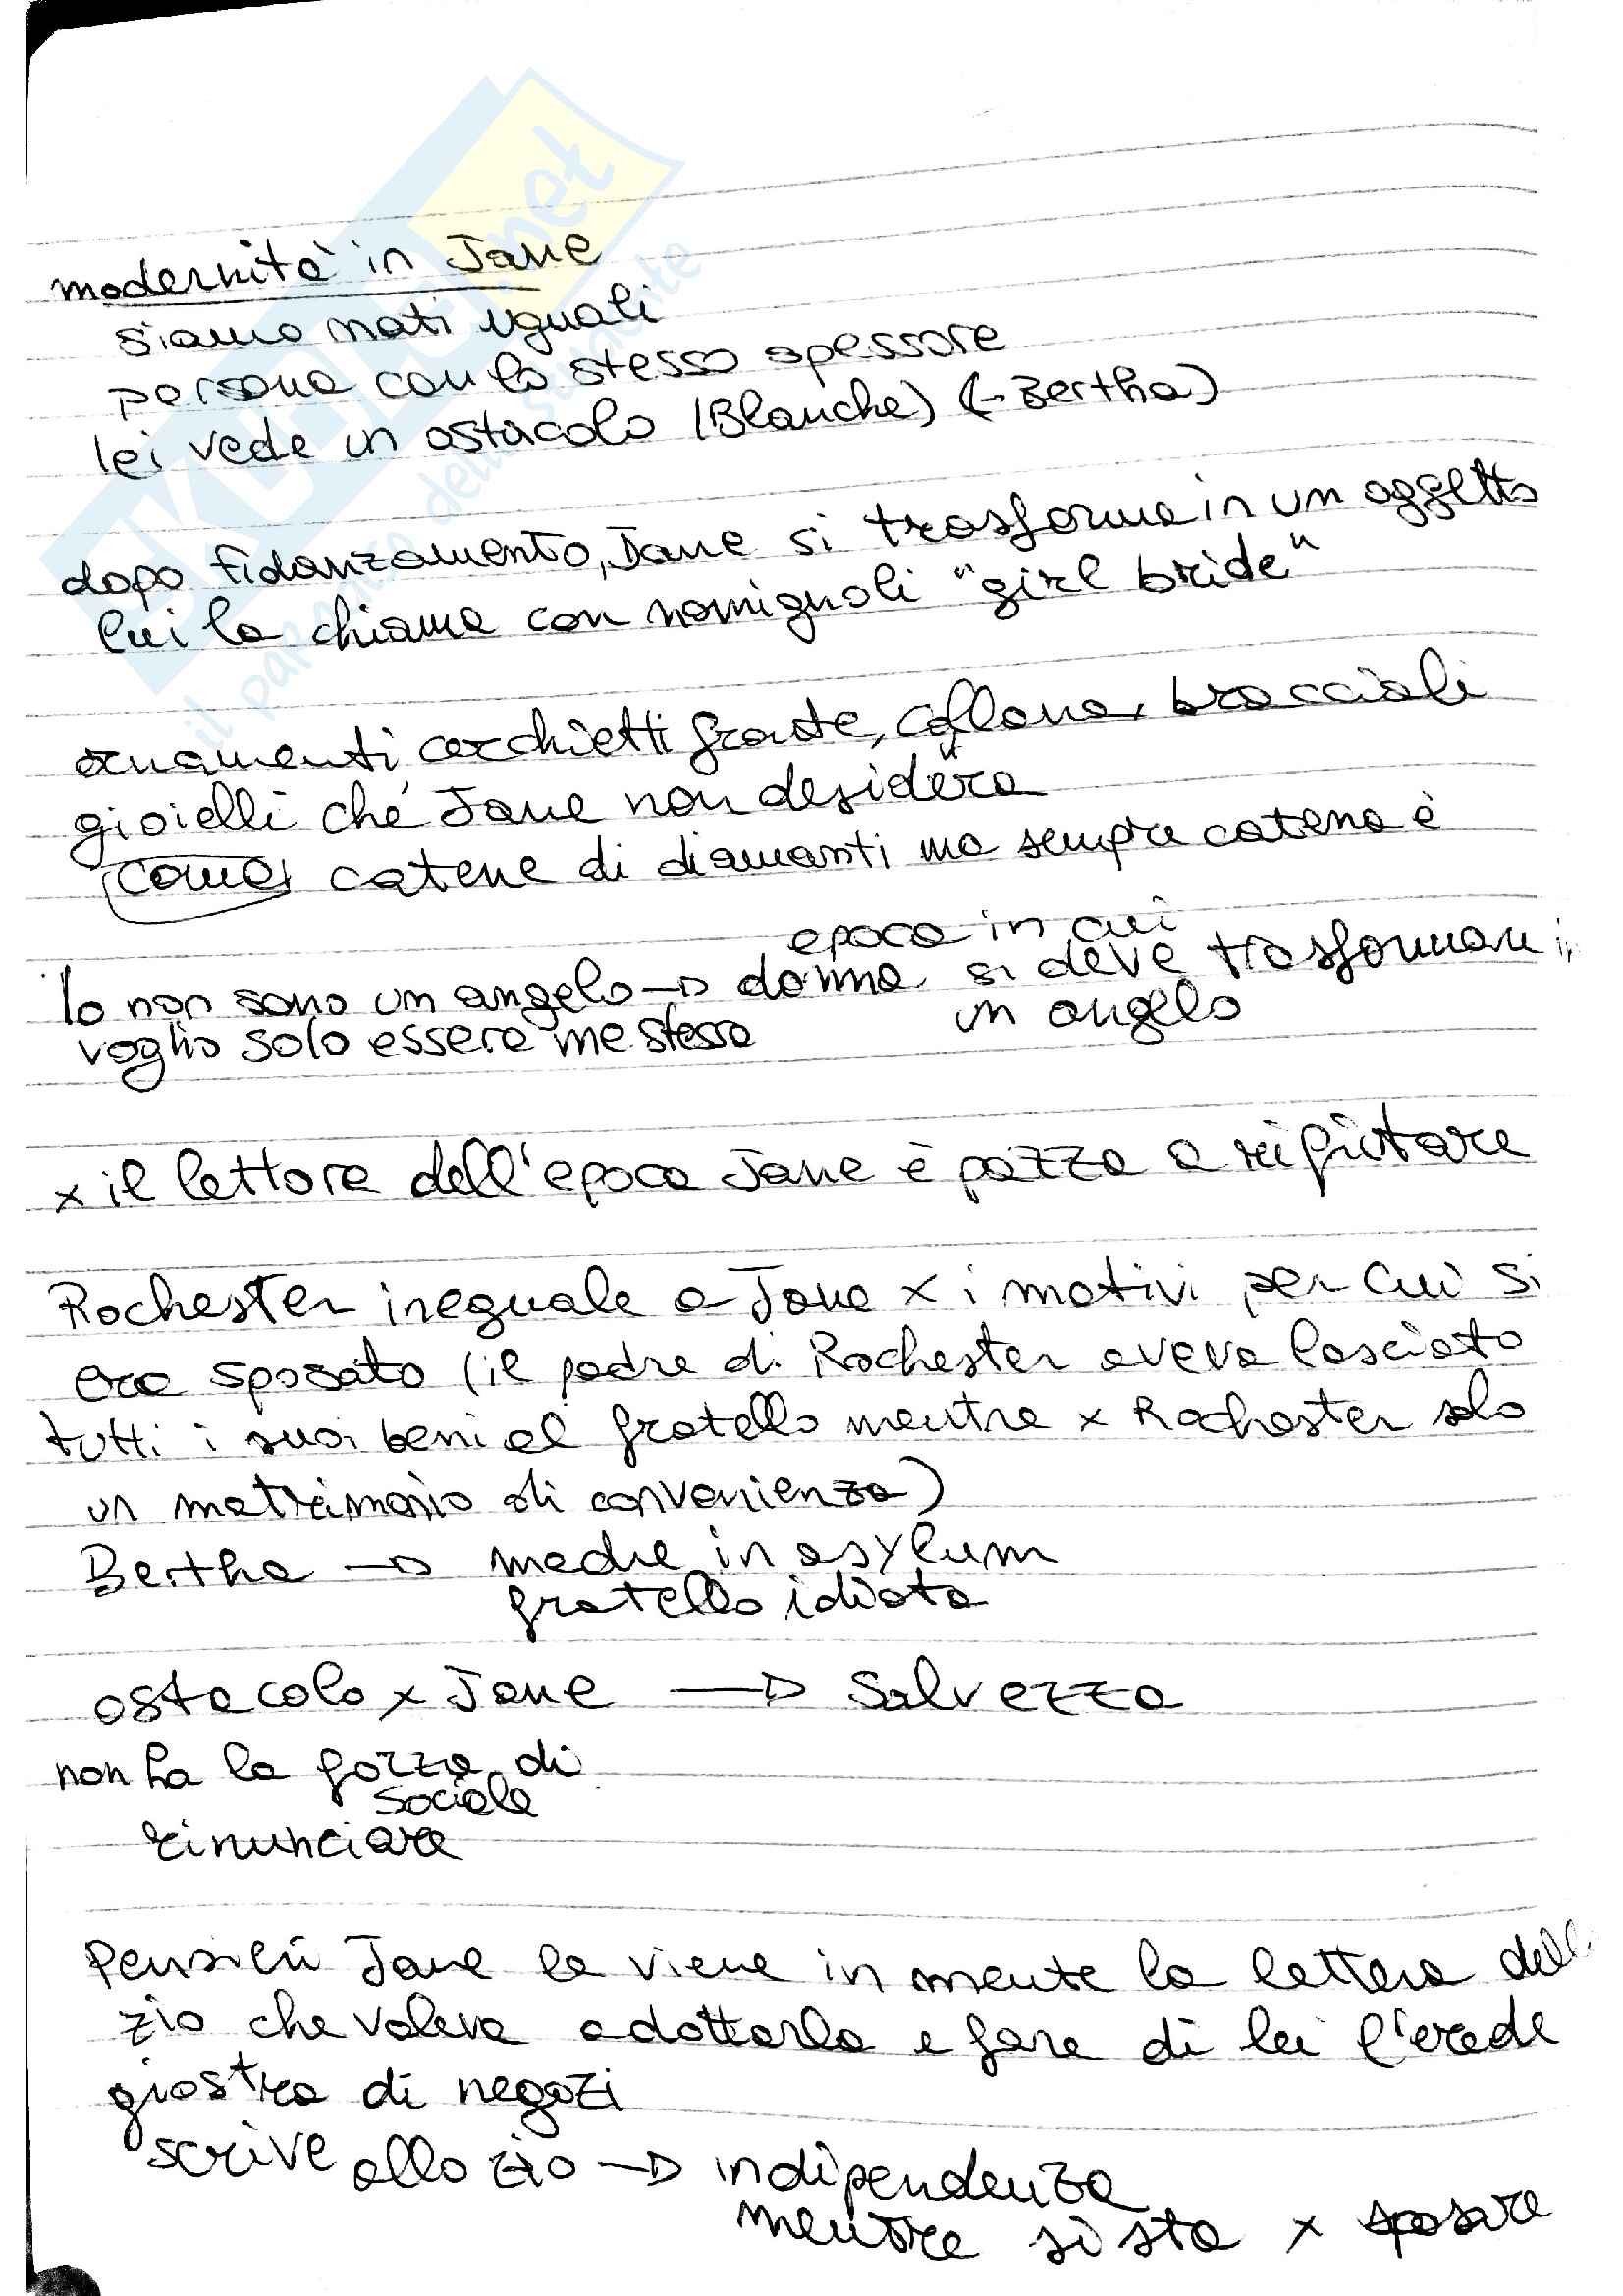 modernità in Jane
siamo nati uguali
persona con lo stesso spessore
lei vede un ostacolo (Blanche) (→ Bertha)
dopo fidanzamento, Jane si trasforma in un oggetto
lui la chiama con nomignoli "girl bride"
ornamenti cerchietti fronte, collana, braccioli
gioielli che Jane non desidera
come catene di diamanti ma sempre catena è
epoca in cui
Io non sono un angelo → donna si deve trasformare
voglio solo essere me stessa in angelo
x il lettore dell'epoca Jane è pazza a rifiutare
Rochester ineguale a Jane x i motivi per cui si
era sposato (il padre di Rochester aveva lasciato
tutti i suoi beni al fratello mentre x Rochester solo
un matrimonio di convenienza)
Bertha → madre in asylum
fratello idiota
ostacolo x Jane → Salvezza
non ha la forza di
sociale
rinunciare
Pensieri Jane le viene in mente la lettera dell
zio che voleva adottarla e fare di lei l'erede
giostra di negozi
scrive allo zio → indipendenza
mentre si sta x sposare
il paradiso dello studente
.net